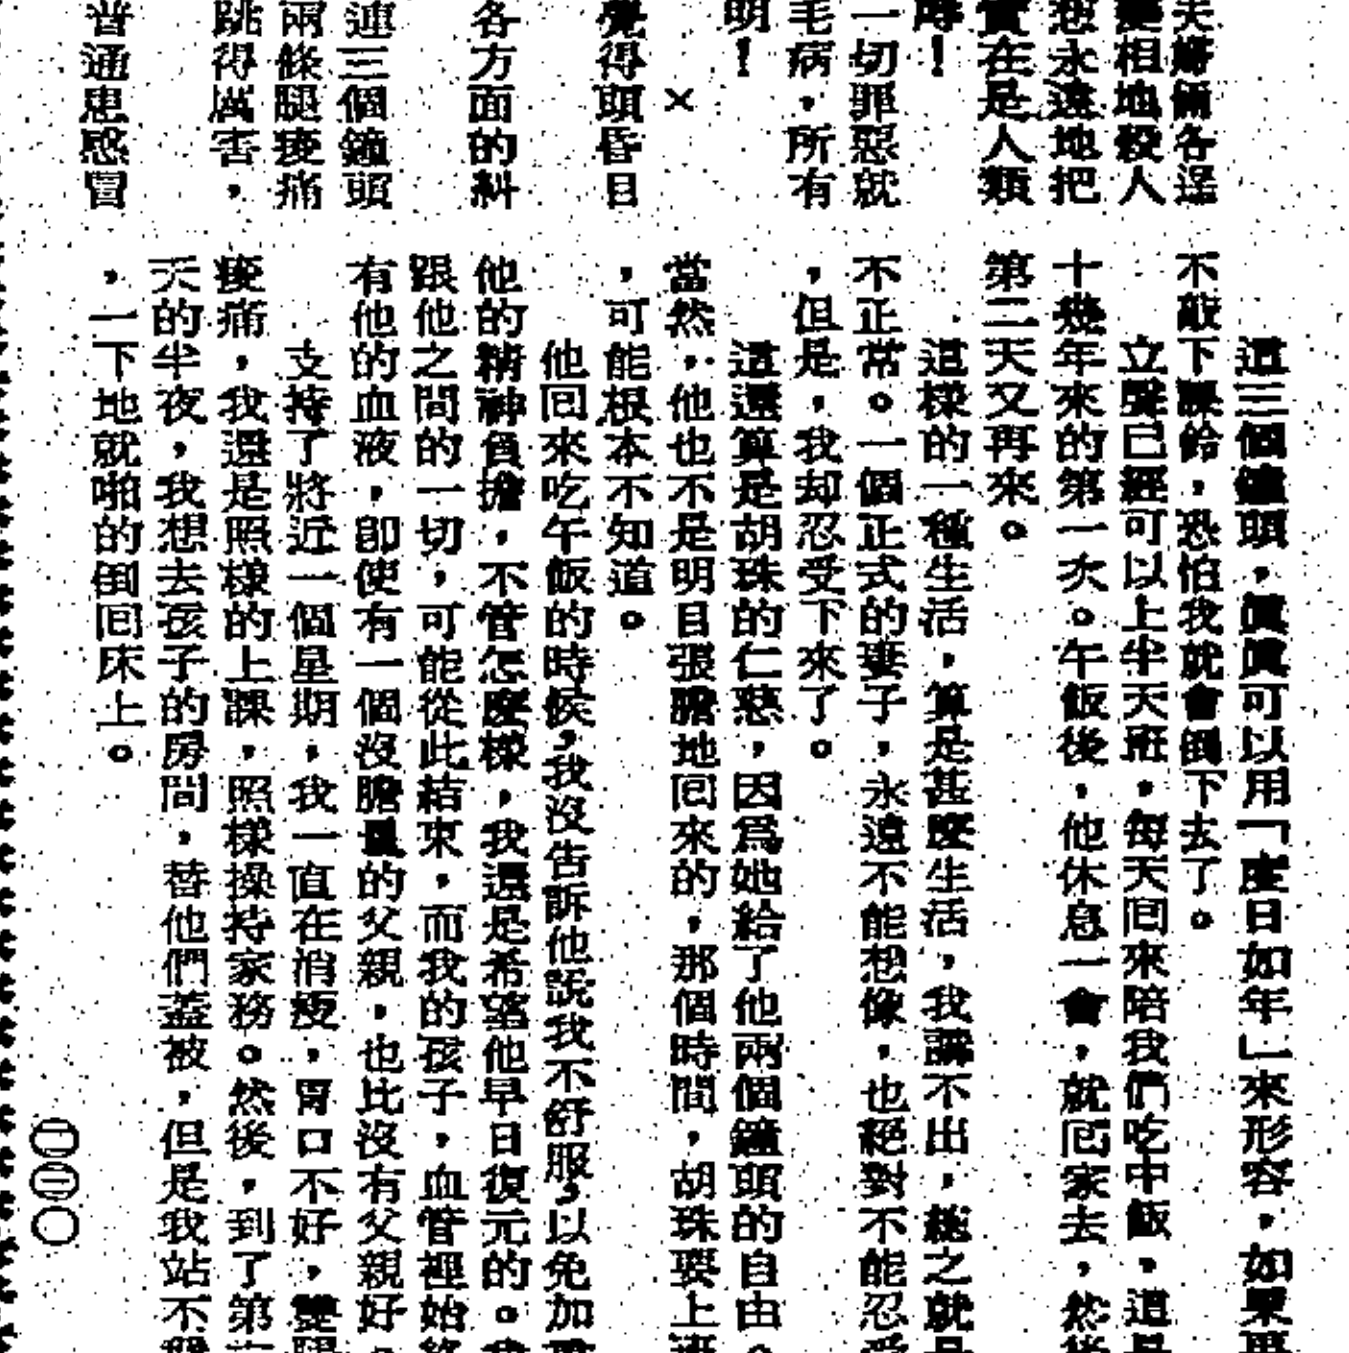 夫婦倆各逞
變相地殺人
想永遠地把
實在是人類
時！
一切罪惡就
毛病，所有
明！
×
覺得頭昏目
各方面的糾
連三個鐘頭
兩條腿痠痛
跳得厲害，
普通患感冒
這三個鐘頭，真真可以用「度日如年」來形容，如果再
不敲下課鈴，恐怕我就會倒下去了。
立聲已經可以上半天班，每天囘來陪我們吃中飯，這是
十幾年來的第一次。午飯後，他休息一會，就囘家去，然後
第二天又再來。
這樣的一種生活，算是甚麼生活，我講不出，總之就是
不正常。一個正式的妻子，永遠不能想像，也絕對不能忍受
，但是，我却忍受下來了。
這還算是胡珠的仁慈，因爲她給了他兩個鐘頭的自由。
當然，他也不是明目張膽地囘來的，那個時間，胡珠要上班
，可能根本不知道。
他囘來吃午飯的時候，我沒告訴他說我不舒服，以免加重
他的精神負擔，不管怎麼樣，我還是希望他早日復元的。我
跟他之間的一切，可能從此結束，而我的孩子，血管裡始終
有他的血液，卽使有一個沒膽量的父親，也比沒有父親好。
支持了將近一個星期，我一直在消瘦，胃口不好，雙腿
痠痛，我還是照樣的上課，照樣操持家務。然後，到了第六
天的半夜，我想去孩子的房間，替他們蓋被，但是我站不穩
，一下地就啪的倒囘床上。
㊁㊂〇